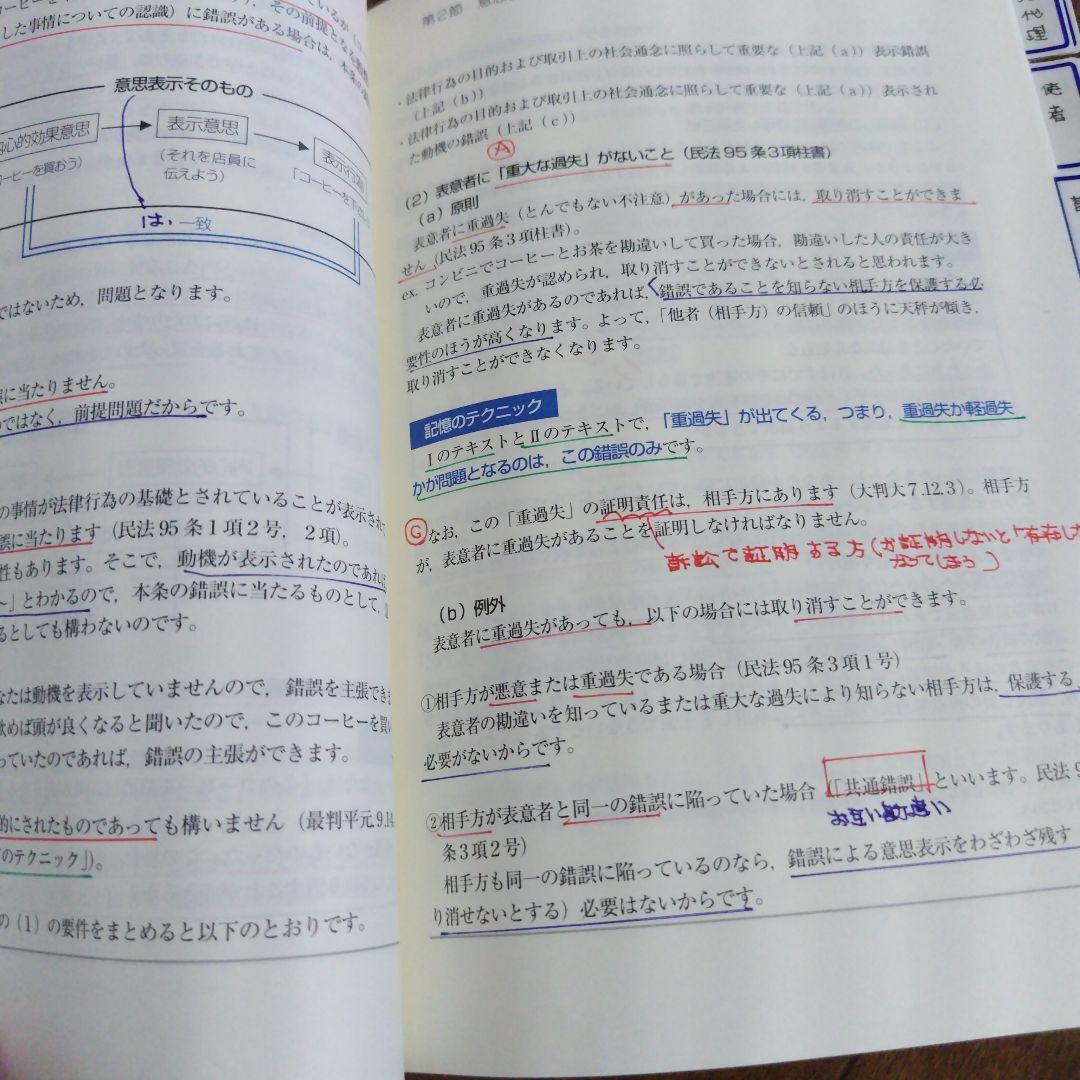 した事情についての認識)に錯誤がある場合は,
意思表示そのもの
心的効果意思
表示意思
表示行為
コーヒーを買おう)
(それを店員に
伝えよう)
「コーヒーを下さ
は,一致
ではないため,問題となります。
誤に当たりません。
のではなく,前提問題だからです。
の事情が法律行為の基礎とされていることが表示され
誤に当たります(民法95条1項2号,2項)。
性もあります。そこで,動機が表示されたのであれば
〜」とわかるので,本条の錯誤に当たるものとして,
るとしても構わないのです。
なたは動機を表示していませんので,錯誤を主張でき
飲めば頭が良くなると聞いたので,このコーヒーを買
っていたのであれば,錯誤の主張ができます。
的にされたものであっても構いません(最判平元.9.14
のテクニック」)。
の(1)の要件をまとめると以下のとおりです。
第2節 意思
・法律行為の目的および取引上の社会通念に照らして重要な(上記(a))表示錯誤
(上記(b))
・法律行為の目的および取引上の社会通念に照らして重要な(上記(a))表示され
た動機の錯誤(上記(c))
A
(2)表意者に「重大な過失」がないこと(民法95条3項柱書)
(a)原則
表意者に重過失(とんでもない不注意)があった場合には,取り消すことができま
せん(民法95条3項柱書)。
ex. コンビニでコーヒーとお茶を勘違いして買った場合,勘違いした人の責任が大き
いので,重過失が認められ,取り消すことができないとされると思われます。
表意者に重過失があるのであれば,錯誤であることを知らない相手方を保護する必
要性のほうが高くなります。よって,「他者(相手方)の信頼」のほうに天秤が傾き,
取り消すことができなくなります。
記憶のテクニック
ⅠのテキストとⅡのテキストで,「重過失」が出てくる,つまり,重過失か軽過失
かが問題となるのは,この錯誤のみです。
G
なお,この「重過失」の証明責任は,相手方にあります(大判大7.12.3)。相手方
が,表意者に重過失があることを証明しなければなりません。
訴訟で証明する方(が証明しないと「存在し
なってしまう)
(b)例外
表意者に重過失があっても,以下の場合には取り消すことができます。
①相手方が悪意または重過失である場合(民法95条3項1号)
表意者の勘違いを知っているまたは重大な過失により知らない相手方は,保護する
必要がないからです。
②相手方が表意者と同一の錯誤に陥っていた場合(「共通錯誤」といいます。民法9
お互い勘違い
条3項2号)
相手方も同一の錯誤に陥っているのなら,錯誤による意思表示をわざわざ残す
り消せないとする)必要はないからです。
代理
使者